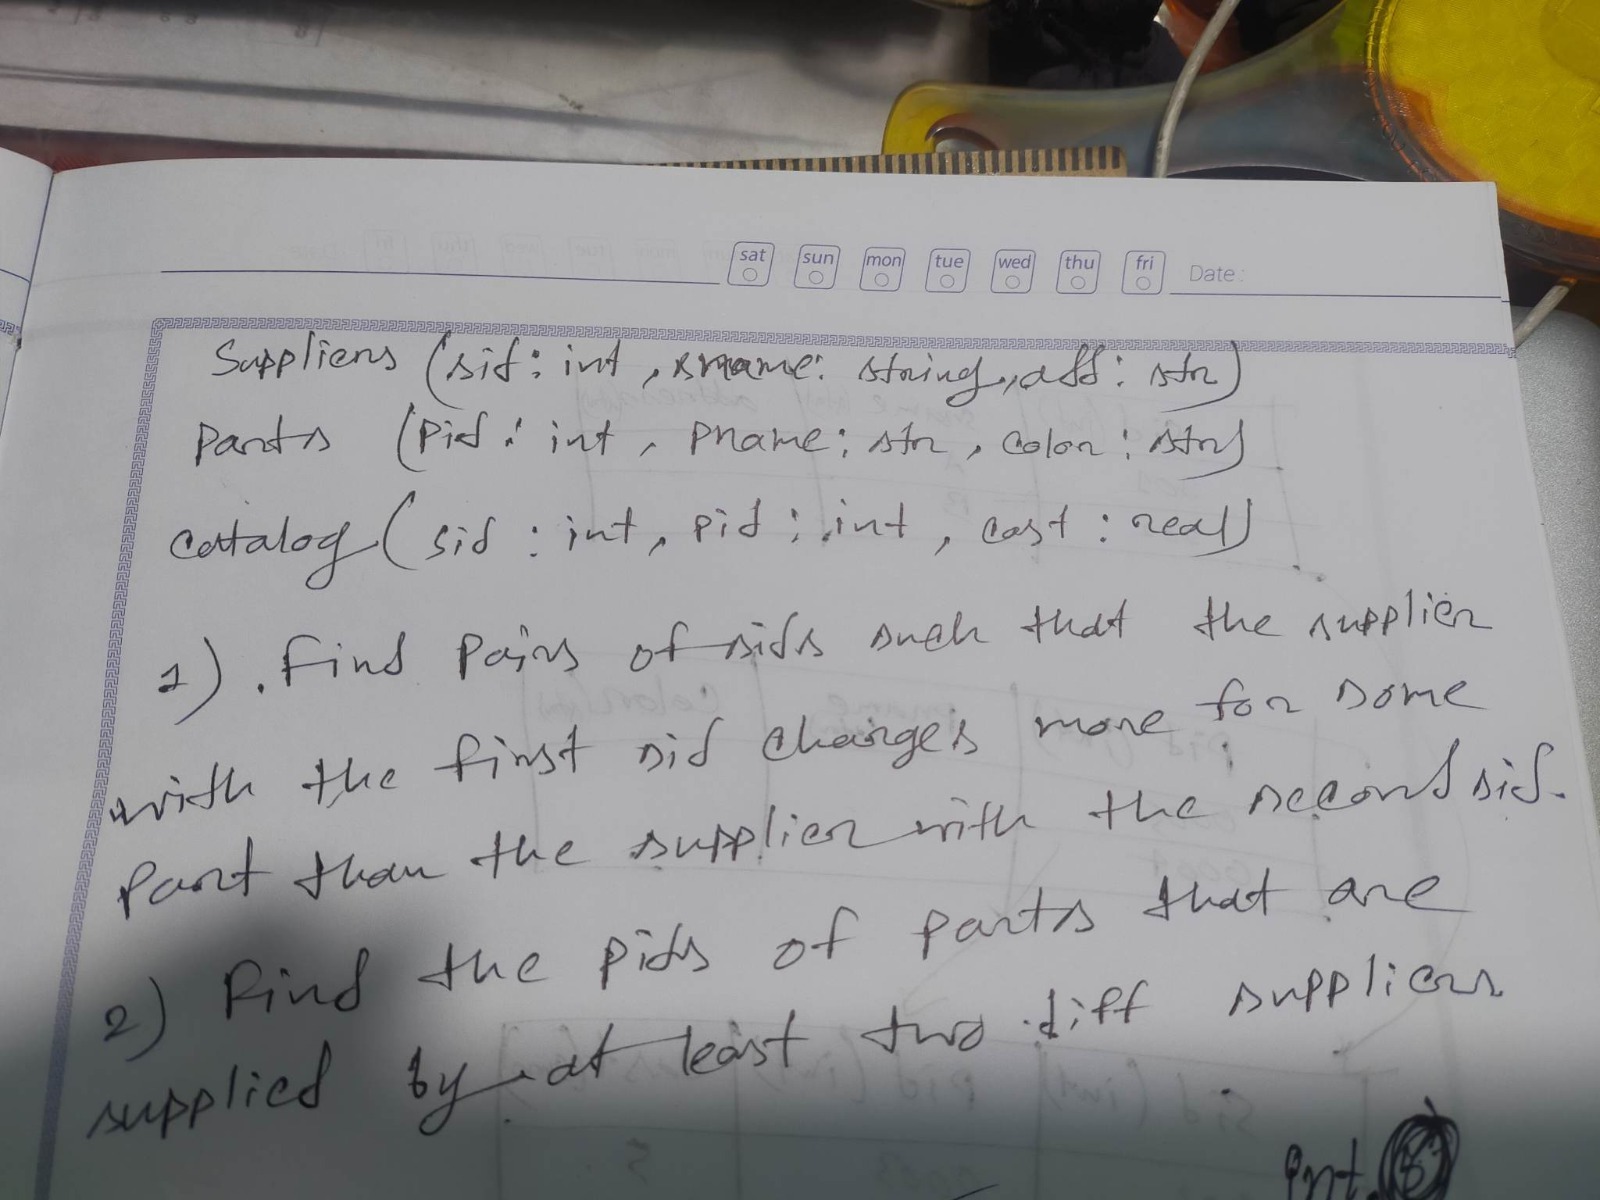 sat sun mon tue wed thu fri Date:
Suppliers (sid: int, sname: string, add: str)
Parts (Pid: int, Pname: str, Color: str)
Catalog (sid: int, pid: int, cost: real)
1). Find Pairs of sids such that the supplier
with the first sid charges more for some
Part than the supplier with the second sid.
2) Find the pids of parts that are
supplied by at least two diff suppliers
Int.